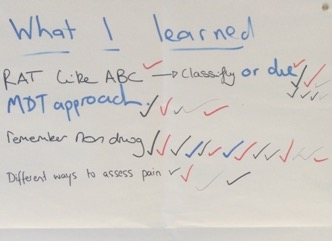 What I learned
RAT like ABC → Classifly or die
MDT approach.
remember non drug
Different ways to assess pain